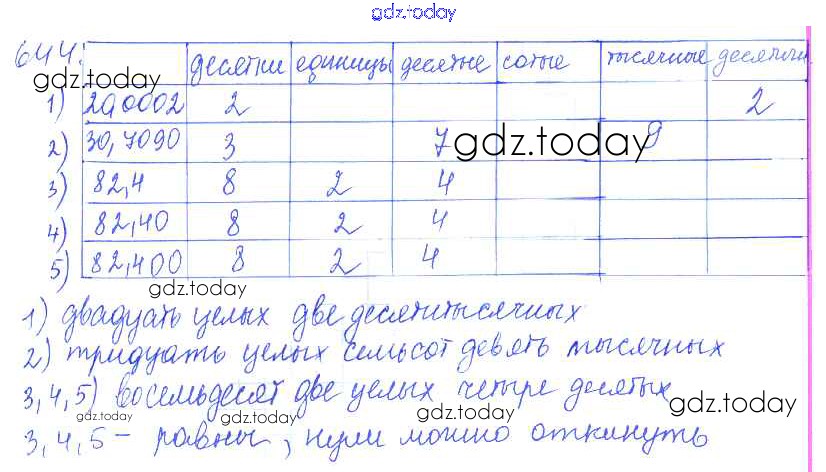 gdz.today
644.
десятки единицы десятые сотые тысячные десятичн
gdz.today
1) 20,0002 2 2
2) 30,7090 3 7 9
gdz.today
3) 82,4 8 2 4
4) 82,40 8 2 4
5) 82,400 8 2 4
gdz.today
1) двадцать целых две десятитысячных
2) тридцать целых семьсот девять тысячных
3, 4, 5) восемьдесят две целых четыре десятых
gdz.today gdz.today gdz.today gdz.today
3, 4, 5 - равны, нули можно откинуть